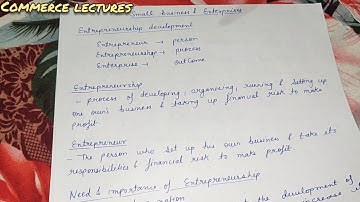 Commerce lectures
Small business & Enterprises
Entrepreneurship development
Entrepreneur → person
Entrepreneurship → process
Enterprise → outcome
Entrepreneurship
- process of developing, organizing, running & setting up
one own's business & taking up financial risk to make
profit.
Entrepreneur
- The person who set up his own business & take its
responsibilities & financial risk to make profit.
Need & importance of Entrepreneurship
the development of
increase